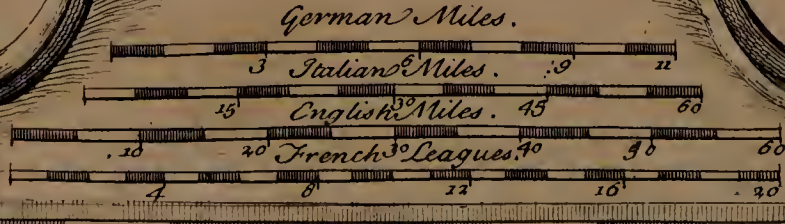 German Miles.
3 6 9 11
Italian Miles.
15 30 45 60
English Miles.
10 20 30 40 50 60
French Leagues.
4 8 12 16 20